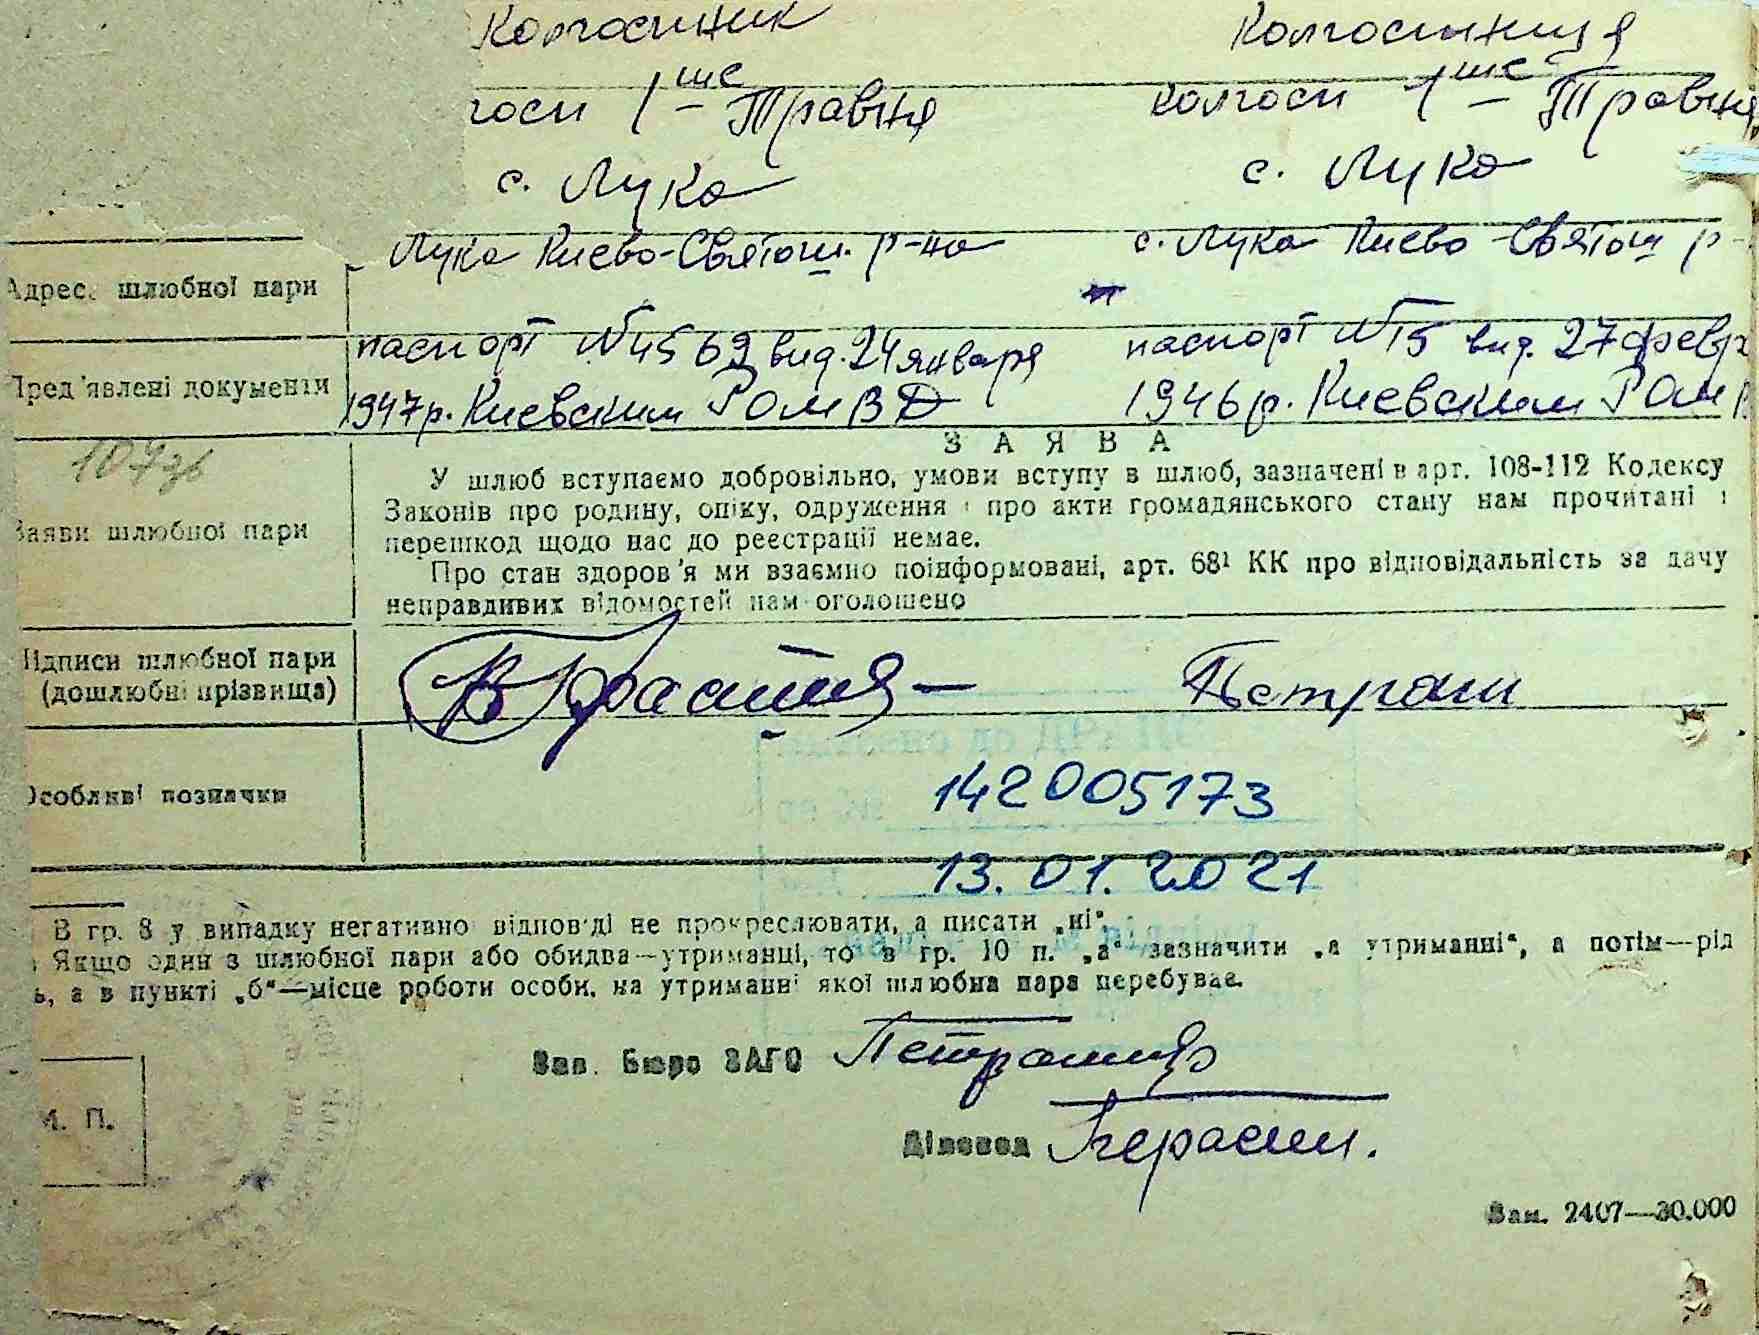 Колгоспник Колгоспниця
госп 1ше Травня колгосп 1ше Травня
с. Лука с. Лука
Лука Киево-Святош. р-на с. Лука Киево-Святош р-
Адрес. шлюбної пари
паспорт №4569 вид. 24 января паспорт №15 вид. 27 февр
Пред'явлені документи
1947р. Киевским РОМВД 1946р. Киевским РОМВ
ЗАЯВА
У шлюб вступаємо добровільно, умови вступу в шлюб, зазначені в арт. 108-112 Кодексу
Законів про родину, опіку, одруження і про акти громадянського стану нам прочитані і
перешкод щодо нас до реєстрації немає.
Заяви шлюбної пари
Про стан здоров'я ми взаємно поінформовані, арт. 68¹ КК про відповідальність за дачу
неправдивих відомостей нам оголошено
Підписи шлюбної пари
(дошлюбні прізвища)
Особливі позначки
142005173
13.01.2021
В гр. 8 у випадку негативної відповіді не прокреслювати, а писати „ні“.
Якщо один з шлюбної пари або обидва—утриманці, то в гр. 10 п. „а“ зазначити „а утриманні“, а потім—рід
ь, а в пункті „б“—місце роботи особи, на утриманні якої шлюбна пара перебуває.
Зав. Бюро ЗАГС
М. П.
Діловод
Зам. 2407—30.000